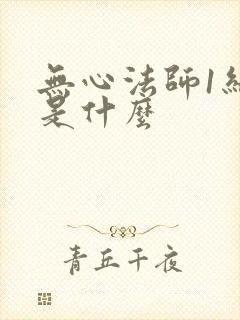 無心法師1
是什麼
青丘千夜